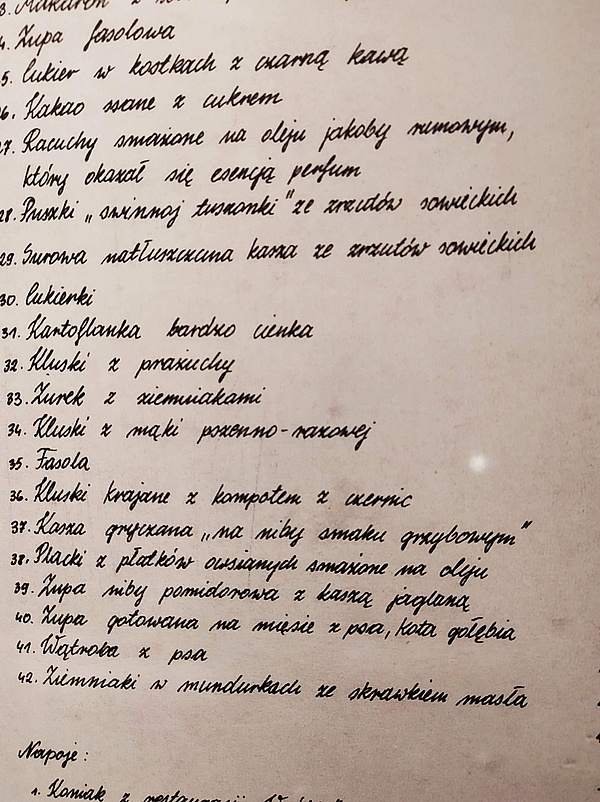 3. Makaron z
4. Zupa fasolowa
5. Cukier w kostkach z czarną kawą
6. Kakao ssane z cukrem
27. Racuchy smażone na oleju jakoby rumowym,
który okazał się esencją perfum
28. Puszki „swinnoj tuszonki" ze zrzutów sowieckich
29. Surowa natłuszczona kasza ze zrzutów sowieckich
30. Cukierki
31. Kartoflanka bardzo cienka
32. Kluski z prażuchy
33. Żurek z ziemniakami
34. Kluski z mąki pszenno-razowej
35. Fasola
36. Kluski krajane z kompotem z czernic
37. Kasza gryczana „na niby smaku grzybowym"
38. Placki z płatków owsianych smażone na oleju
39. Zupa niby pomidorowa z kaszą jaglaną
40. Zupa gotowana na mięsie z psa, kota gołębia
41. Wątroba z psa
42. Ziemniaki w mundurkach ze skrawkiem masła
Napoje:
1. Koniak z restauracji